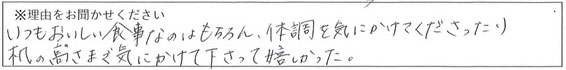 ※理由をお聞かせください
いつもおいしい食事なのはもちろん、体調を気にかけてくださったり
机の高さまで気にかけて下さって嬉しかった。